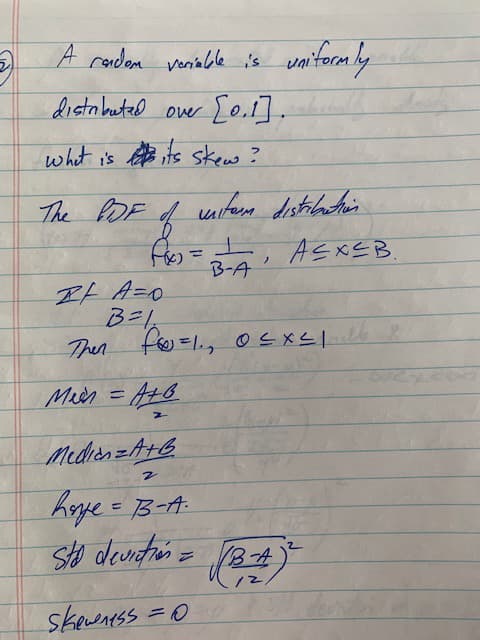 2
A random variable is uniformly
distributed over [0,1].
What is its skew?
The PDF of uniform distribution
f(x) = 1/(B-A), A ≤ x ≤ B.
If A=0
B=1
Then f(x)=1., 0 ≤ x ≤ 1
Mean = (A+B)/2
Median = (A+B)/2
Range = B-A.
Std deviation = √((B-A)/12)²
Skewness = 0